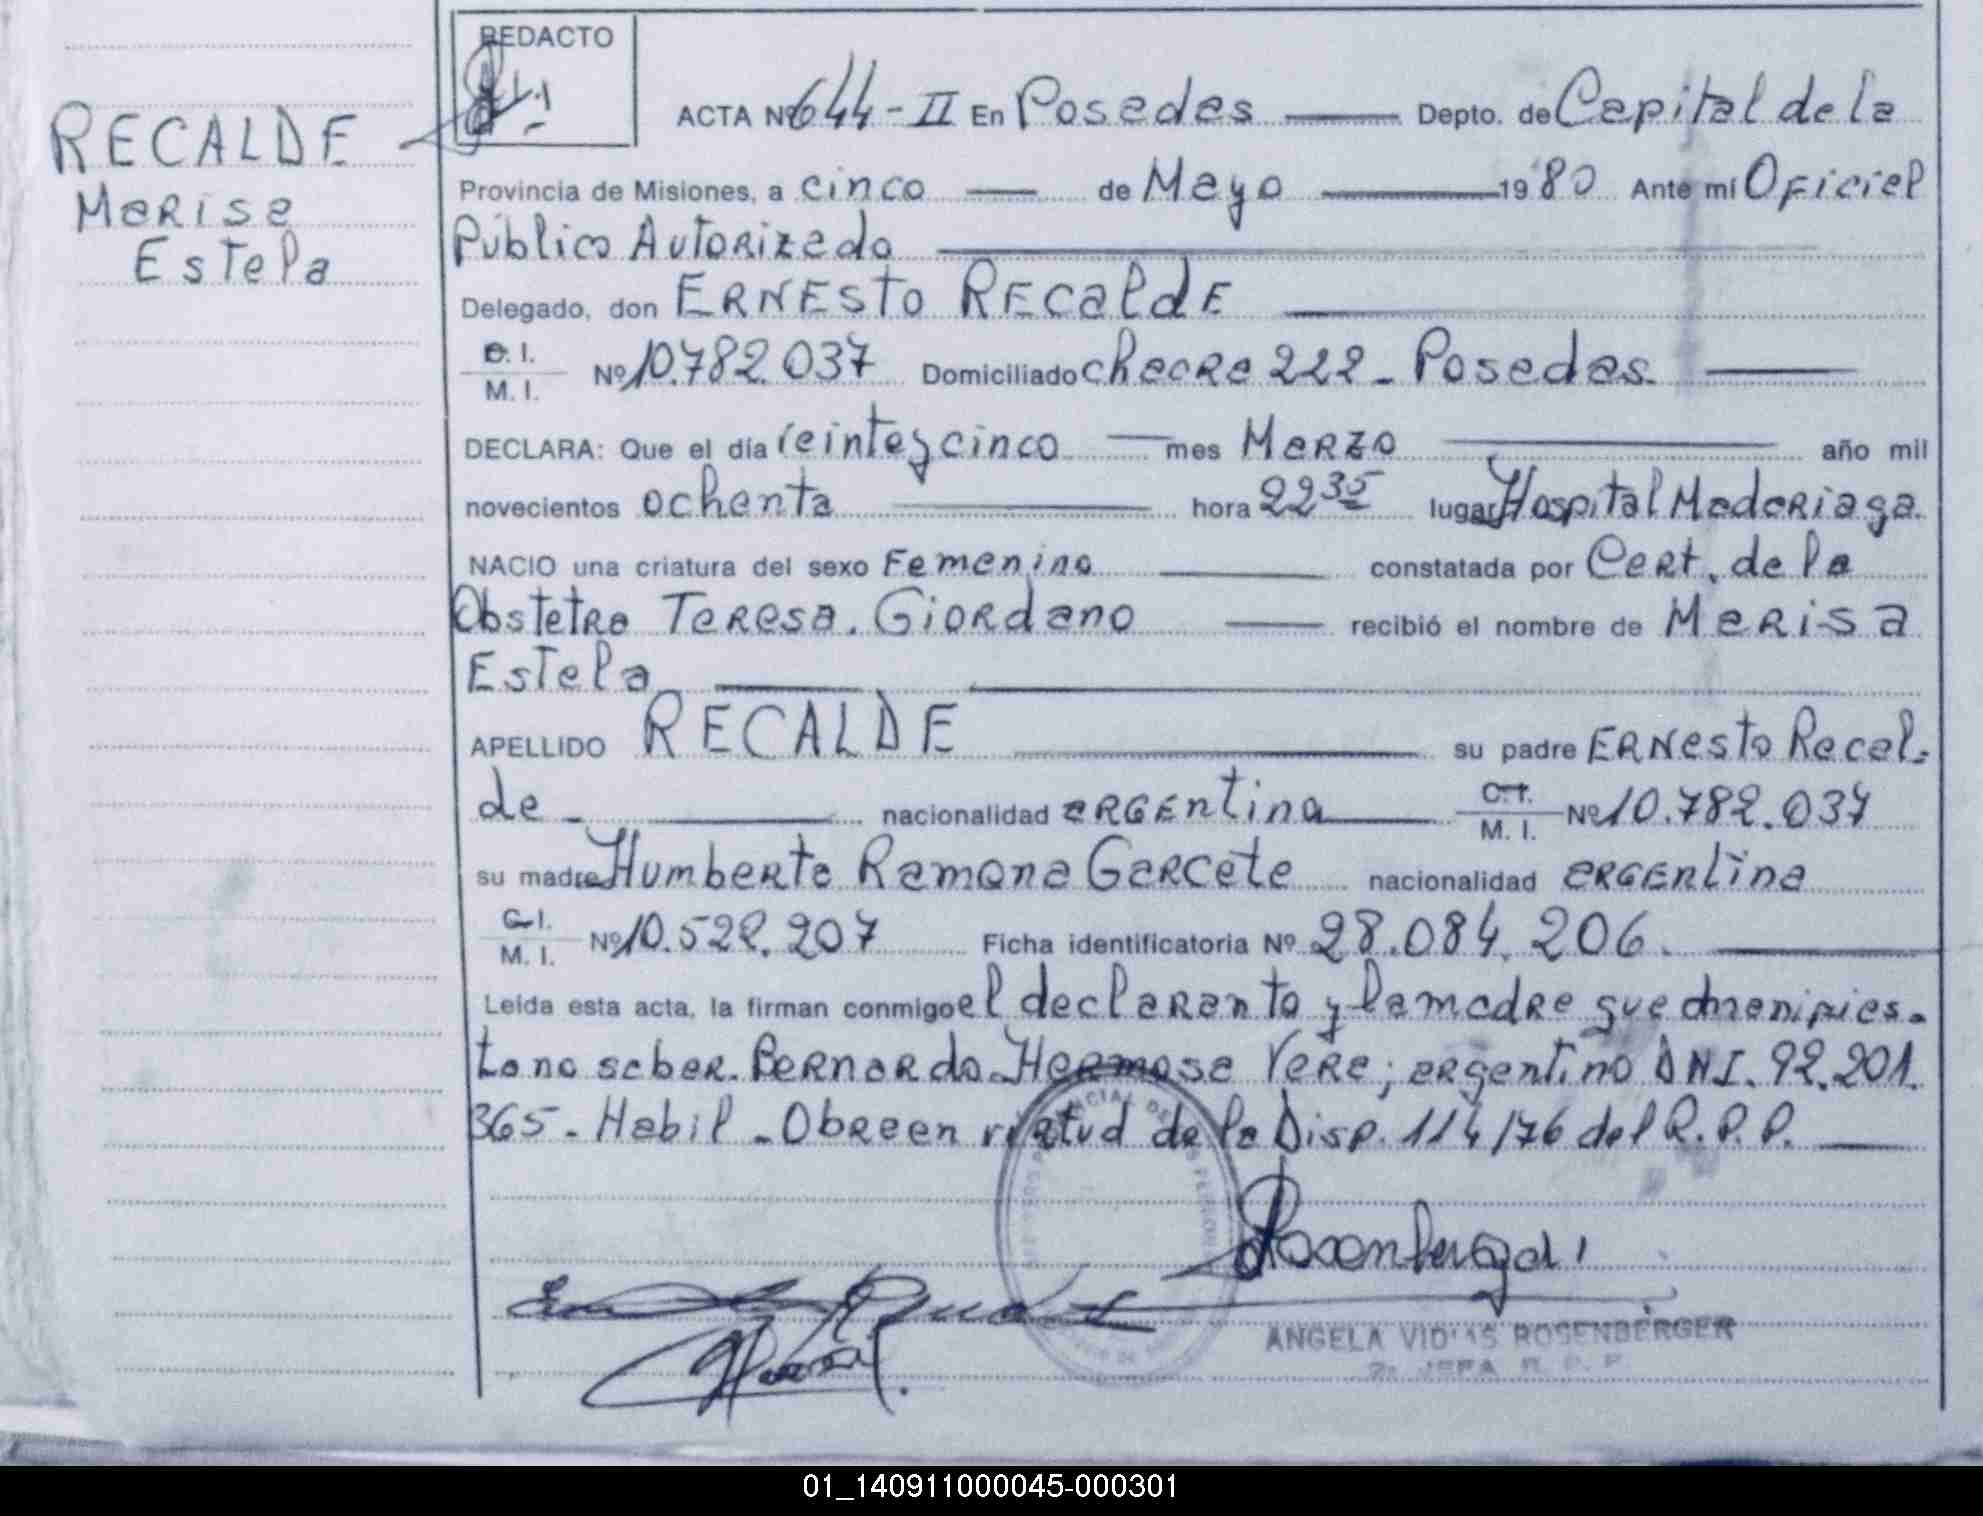 RECALDE
Marisa
Estela
REDACTO
ACTA Nº 644-II En Posadas Depto. de Capital de la
Provincia de Misiones, a cinco de Mayo 1980 Ante mí Oficial
Público Autorizado
Delegado, don ERNESTO RECALDE
C. I.
M. I. Nº 10.782.037 Domiciliado chacra 222 - Posadas.
DECLARA: Que el día veintey cinco mes Marzo año mil
novecientos ochenta hora 22 35 lugar Hospital Madariaga.
NACIO una criatura del sexo Femenino constatada por Cert. de la
Obstetra Teresa. Giordano recibió el nombre de Marisa
Estela
APELLIDO RECALDE su padre ERNesto Recal-
de - nacionalidad argentina C. I.
M. I. Nº 10.782.037
su madre Humberta Ramona Garcete nacionalidad argentina
C. I.
M. I. Nº 10.522.207 Ficha identificatoria Nº 28.084.206.
Leída esta acta, la firman conmigo el declarante y la madre que manifies-
ta no saber. Bernardo Hermosa Vera; argentino DNI. 92.201.
365 - Habil - Obra en virtud de la Disp. 114/76 del R.P.P.
ANGELA ROSENBERGER
2ª JEFA R. P. P.
01_140911000045-000301